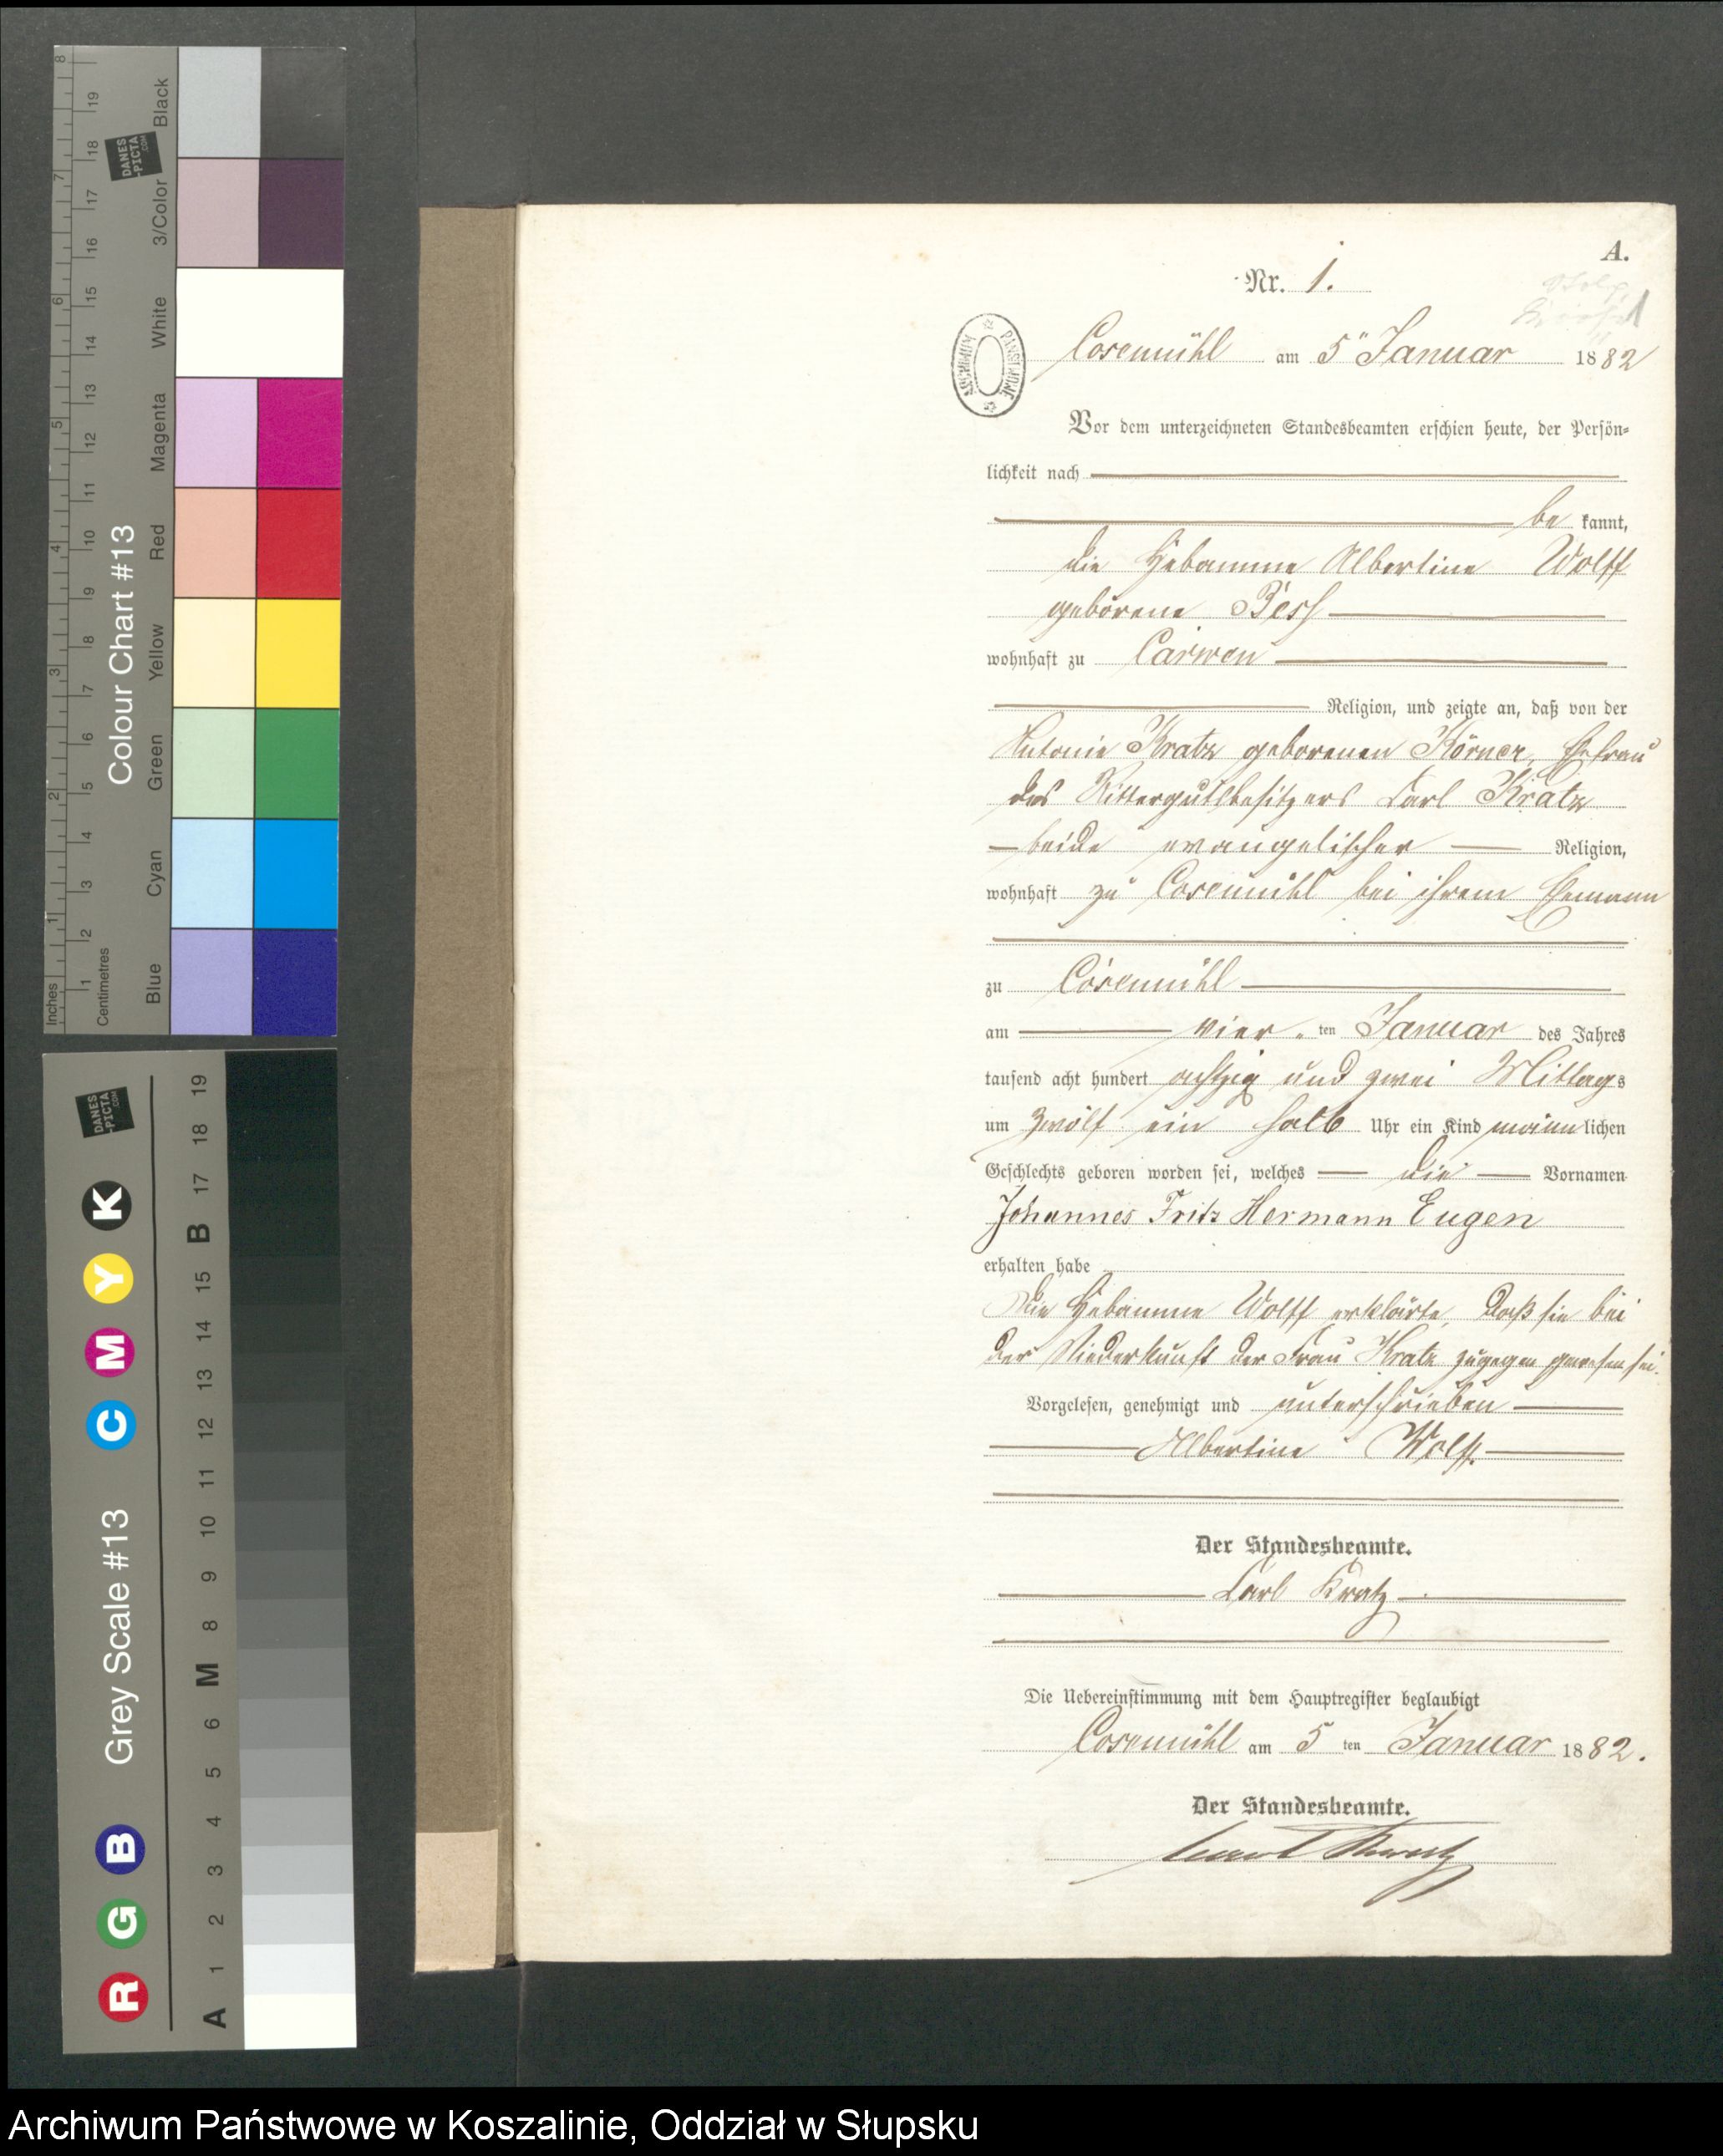 A.
Nr. 1.
ARCHIWUM PAŃSTWOWE
Cosemühl am 5" Januar 1882
Vor dem unterzeichneten Standesbeamten erschien heute, der Persön-
lichkeit nach
be kannt,
die Hebamme Albertine Wolff
geborene
wohnhaft zu Carwen
Religion, und zeigte an, daß von der
Antonie Kratz geborenen Körner, Ehefrau
des Rittergutsbesitzers Carl Kratz
beide evangelischer Religion,
wohnhaft zu Cosemühl bei ihrem Ehemann
zu Cosemühl
am vier ten Januar des Jahres
tausend acht hundert achtzig und zwei Mittags
um zwölf ein halb Uhr ein Kind männlichen
Geschlechts geboren worden sei, welches die Vornamen
Johannes Fritz Hermann Eugen
erhalten habe
Die Hebamme Wolff erklärte, daß sie bei
der Niederkunft der Frau Kratz zugegen gewesen sei.
Vorgelesen, genehmigt und unterschrieben
Albertine Wolff.
Der Standesbeamte.
Carl Kratz
Die Uebereinstimmung mit dem Hauptregister beglaubigt
Cosemühl am 5 ten Januar 1882.
Der Standesbeamte.
Carl Kratz
Colour Chart #13
Black
3/Color
White
Magenta
Red
Yellow
Green
Cyan
Blue
DANES
-PICTA
.COM
Inches
1 2 3 4 5 6 7 8
Centimetres
1 2 3 4 5 6 7 8 9 10 11 12 13 14 15 16 17 18 19
Grey Scale #13
R G B C M Y K
DANES
-PICTA
.COM
A 1 2 3 4 5 6 M 8 9 10 11 12 13 14 15 B 17 18 19
Archiwum Państwowe w Koszalinie, Oddział w Słupsku